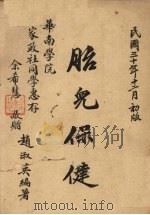 民國三十年十二月初版
胎兒保健
趙淑英編著
華南學院
家政社同學惠存
余希
敬贈